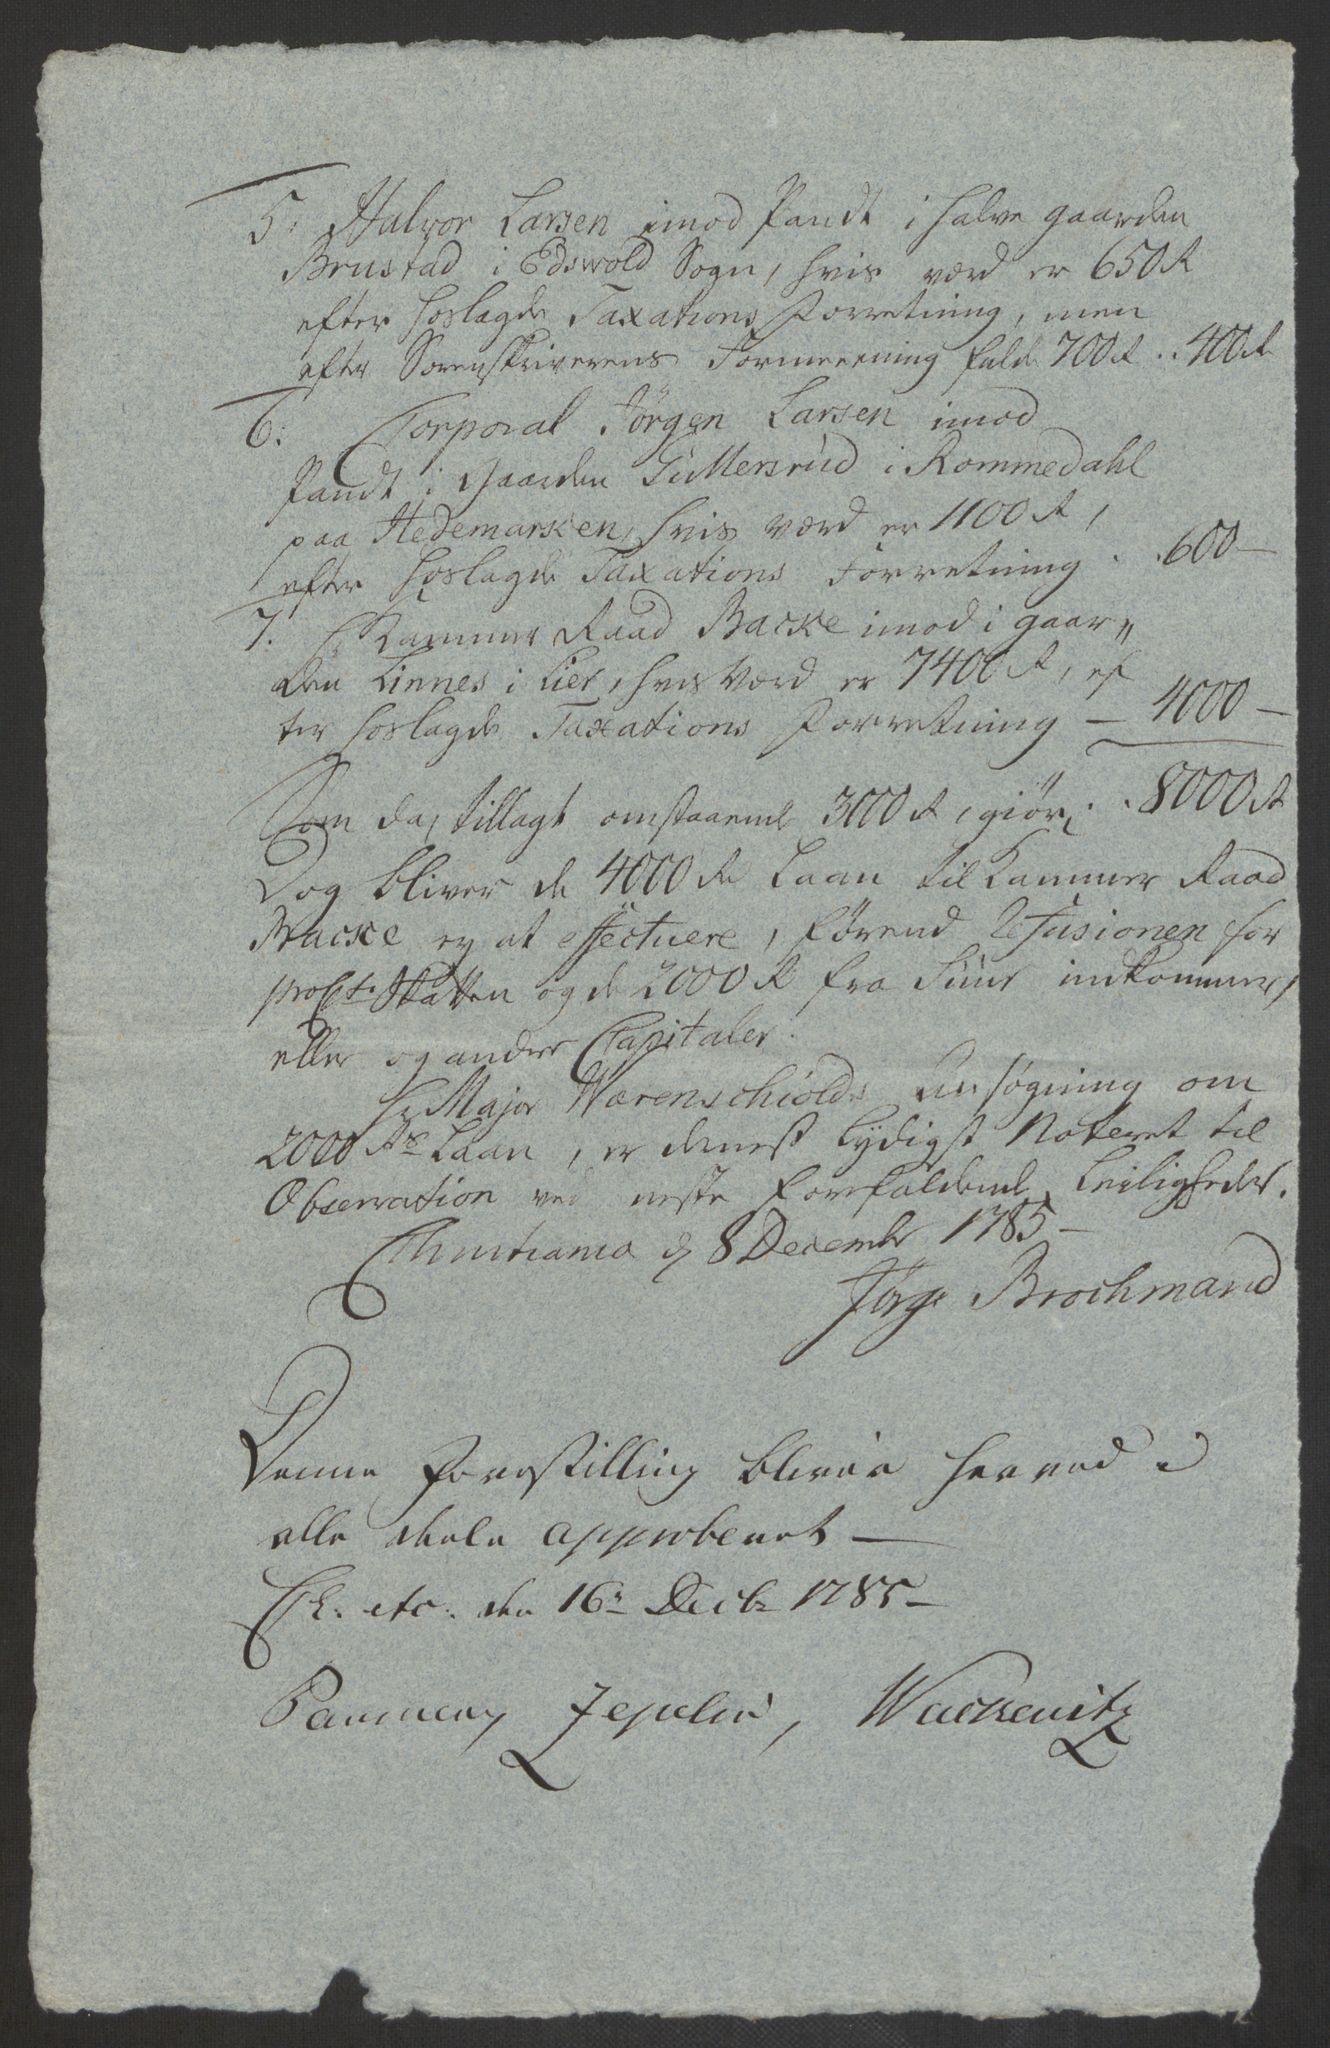 5: Halvor Larsen imod Pandt i halve gaarden
Brustad i Edswold Sogn, hvis værd er 650 R
efter hoslagde Taxations Forretning, men
efter Sorenskriverens Formeening fulde 700 R . . 400 R
6: Corporal Jörgen Larsen imod
Pandt i Gaarden Gullersrud i Rommedahl
paa Hedemarken, hvis Værd er 1100 R,
efter hoslagde Taxations Forretning . . 600 —
7. H Kammer Raad Backe imod i gaar„
den Linnes i Lier, hvis Værd er 7400 R, ef
ter hoslagde Taxations Forretning — 4000 —
Som da, tillagt omstaaende 3000 R, giör . . 8000 R
Dog bliver de 4000 R Laan til Kammer Raad
Backe ey at effectuere, förend Refusionen for
proCt Skatten og de 2000 R fra indkommer,
eller og andre Capitaler.
Hr Major Wærenschiolds ansøgning om
2000 Rs Laan, er dernest lydigst Noteret til
Observation ved neste forefaldende Leiligheder.
Christiania d 8 December 1785 —
Jörg Brochmand
Denne Forestilling bliver herved i
alle deele approberet —
Ch. etc. den 16: Decbr 1785 —
Zepelin, Wackenitz